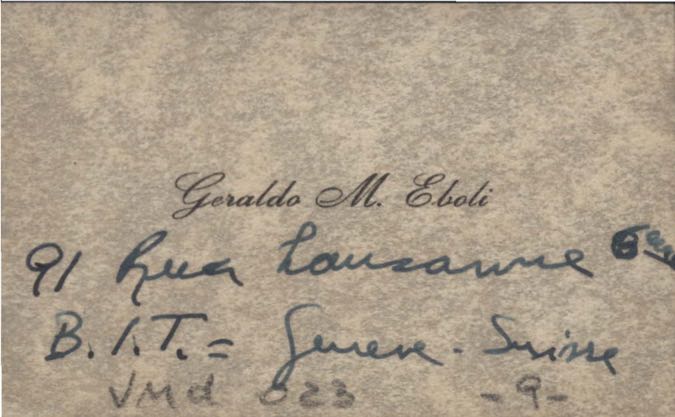 Geraldo M. Eboli
91 Rua Lausanne
B.I.T. = Geneve - Suisse
VMd 023 -9-